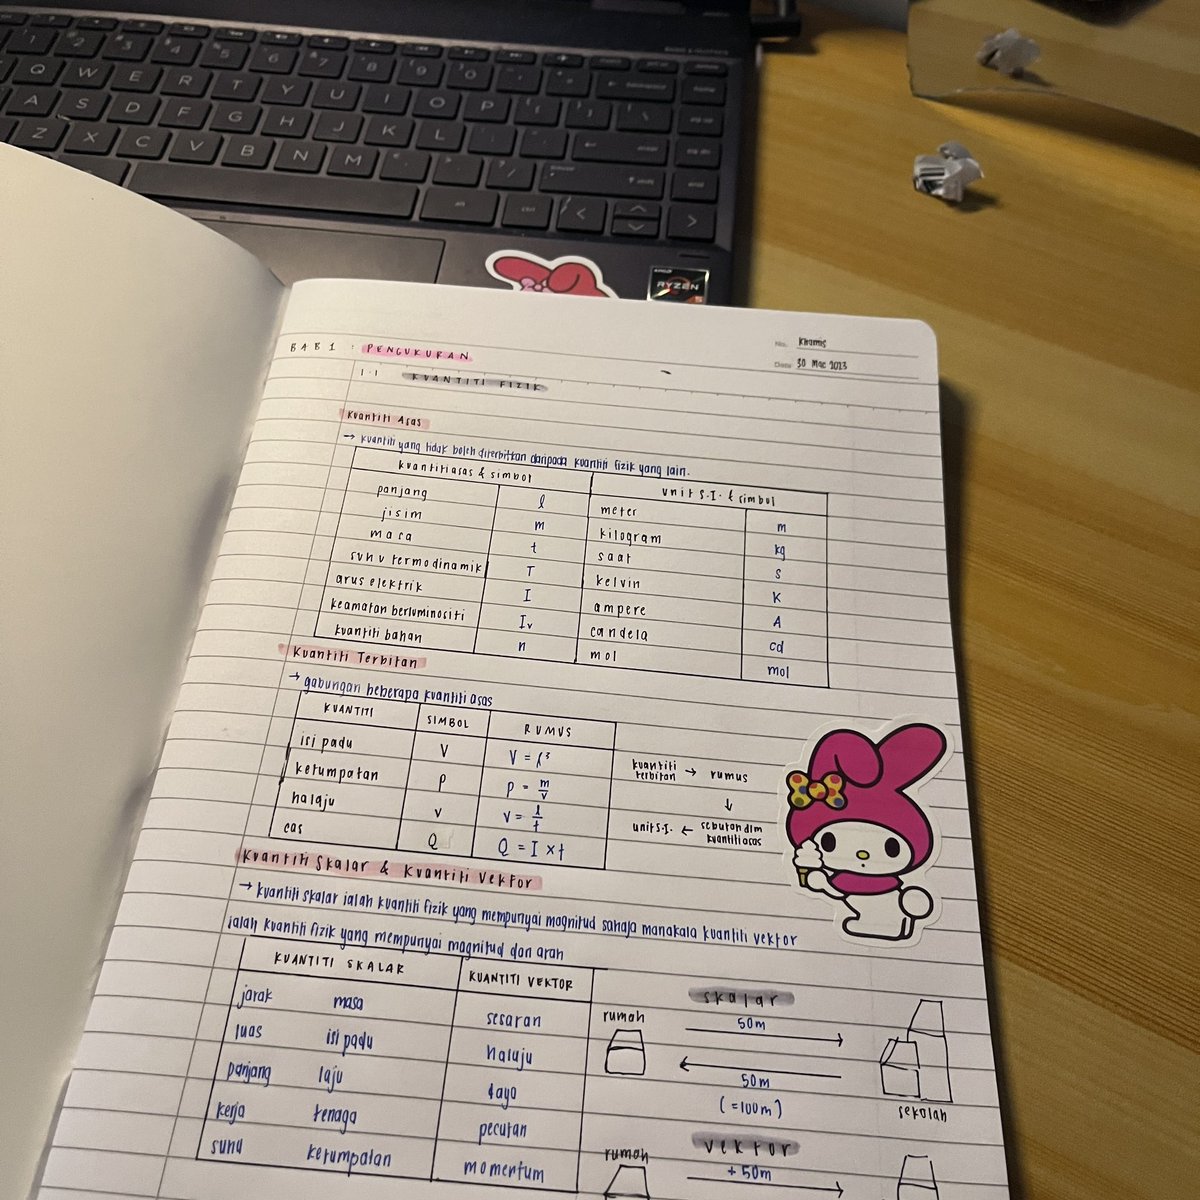 Q W E R T Y U I O P
A S D F G H J K L
Z X C V B N M
AMD
RYZEN
5
No. Khamis
Date 30 Mac 2023
BAB 1 : PENGUKURAN
1.1 KUANTITI FIZIK
Kuantiti Asas
→ kuantiti yang tidak boleh diterbitkan daripada kuantiti fizik yang lain.
kuantiti asas & simbol unit S.I. & simbol
panjang l meter m
jisim m kilogram kg
masa t saat s
suhu termodinamik T kelvin K
arus elektrik I ampere A
keamatan berluminositi Iv candela cd
kuantiti bahan n mol mol
Kuantiti Terbitan
→ gabungan beberapa kuantiti asas
KUANTITI SIMBOL RUMUS
isi padu V V = l³
ketumpatan ρ ρ = m/v
halaju v v = l/t
cas Q Q = I × t
kuantiti terbitan → rumus
↓
unit S.I. ← sebutan dlm kuantiti asas
Kuantiti Skalar & Kuantiti Vektor
→ kuantiti skalar ialah kuantiti fizik yang mempunyai magnitud sahaja manakala kuantiti vektor
ialah kuantiti fizik yang mempunyai magnitud dan arah
KUANTITI SKALAR KUANTITI VEKTOR
jarak masa sesaran
luas isi padu halaju
panjang laju daya
kerja tenaga pecutan
suhu ketumpatan momentum
skalar
rumah 50m
50m
(=100m)
sekolah
vektor
rumah +50m